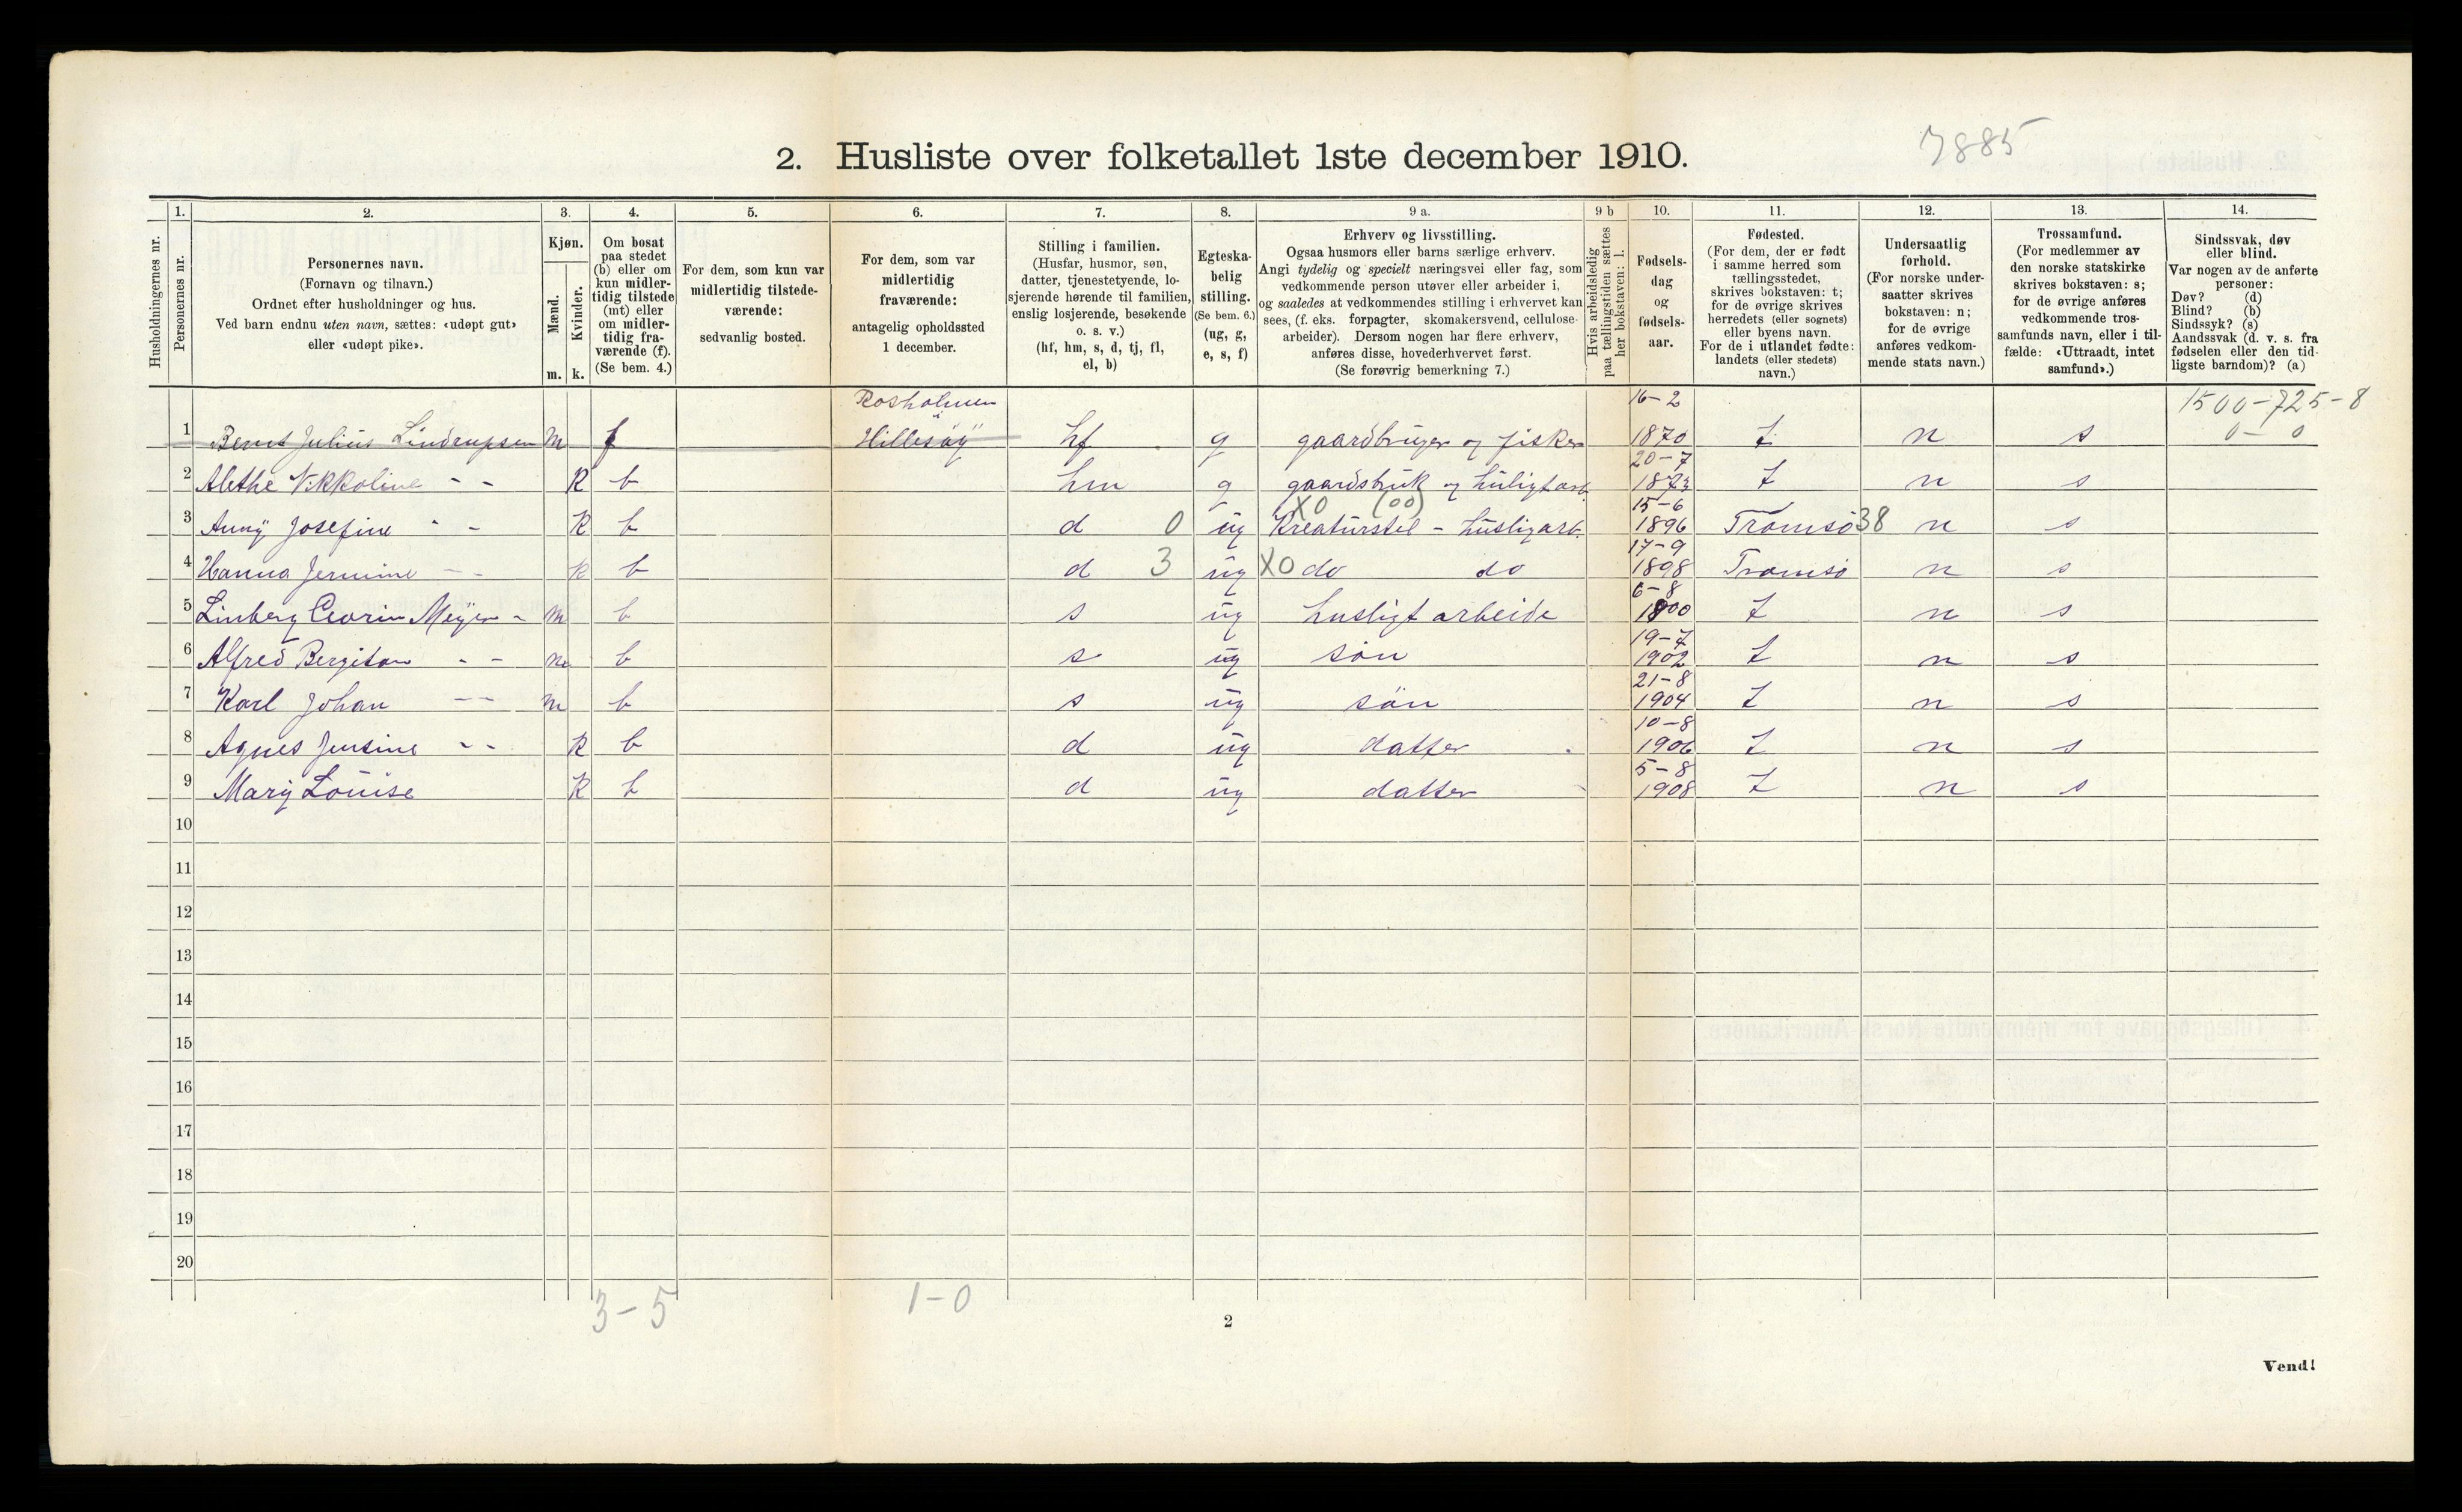 7885
2. Husliste over folketallet 1ste december 1910.
Husholdningernes nr.
1. Personernes nr.
2. Personernes navn.
(Fornavn og tilnavn.)
Ordnet efter husholdninger og hus.
Ved barn endnu uten navn, sættes: «udøpt gut»
eller «udøpt pike».
3. Kjøn.
Mænd. Kvinder.
m. k.
4. Om bosat
paa stedet
(b) eller om
kun midler-
tidig tilstede
(mt) eller
om midler-
tidig fra-
værende (f).
(Se bem. 4.)
5. For dem, som kun var
midlertidig tilstede-
værende:
sedvanlig bosted.
6. For dem, som var
midlertidig
fraværende:
antagelig opholdssted
1 december.
7. Stilling i familien.
(Husfar, husmor, søn,
datter, tjenestetyende, lo-
sjerende hørende til familien,
enslig losjerende, besøkende
o. s. v.)
(hf, hm, s, d, tj, fl,
el, b)
8. Egteska-
belig
stilling.
(Se bem. 6.)
(ug, g,
e, s, f)
9 a. Erhverv og livsstilling.
Ogsaa husmors eller barns særlige erhverv.
Angi tydelig og specielt næringsvei eller fag, som
vedkommende person utøver eller arbeider i,
og saaledes at vedkommendes stilling i erhvervet kan
sees, (f. eks. forpagter, skomakersvend, cellulose-
arbeider). Dersom nogen har flere erhverv,
anføres disse, hovederhvervet først.
(Se forøvrig bemerkning 7.)
9 b Hvis arbeidsledig
paa tællingstiden sættes
her bokstaven: l.
10. Fødsels-
dag
og
fødsels-
aar.
11. Fødested.
(For dem, der er født
i samme herred som
tællingsstedet,
skrives bokstaven: t;
for de øvrige skrives
herredets (eller sognets)
eller byens navn.
For de i utlandet fødte:
landets (eller stedets)
navn.)
12. Undersaatlig
forhold.
(For norske under-
saatter skrives
bokstaven: n;
for de øvrige
anføres vedkom-
mende stats navn.)
13. Trossamfund.
(For medlemmer av
den norske statskirke
skrives bokstaven: s;
for de øvrige anføres
vedkommende tros-
samfunds navn, eller i til-
fælde: «Uttraadt, intet
samfund».)
14. Sindssvak, døv
eller blind.
Var nogen av de anførte
personer:
Døv? (d)
Blind? (b)
Sindssyk? (s)
Aandssvak (d. v. s. fra
fødselen eller den tid-
ligste barndom)? (a)
Rosholmen 16-2 1500-725-8
1 Bernt Julius Lindrupsen m f Hillesöÿ hf g gaardbruger og fisker 1870 t n s 0-0
20-7
2 Alethe Vikkoline - - k b hm g gaardsbruk og huligt arb. 1873 t n s
X0 (00) 15-6
3 Anny Josefine - - k b d 0 ug Kreaturstel - husligarb. 1896 Tromsø 38 n s
17-9
4 Hanna Jermine - - k b d 3 ug X0 do do 1898 Tromsø n s
6-8
5 Linberg Meÿer - m b s ug husligt arbeide 1900 t n s
19-7
6 Alfred Bergiton - - m b s ug søn 1902 t n s
21-8
7 Karl Johan - - m b s ug sön 1904 t n s
10-8
8 Agnes Jensine - - k b d ug datter 1906 t n s
5-8
9 Mary Louise k b d ug datter 1908 t n s
10
11
12
13
14
15
16
17
18
19
20
3-5 1-0
2
Vend!